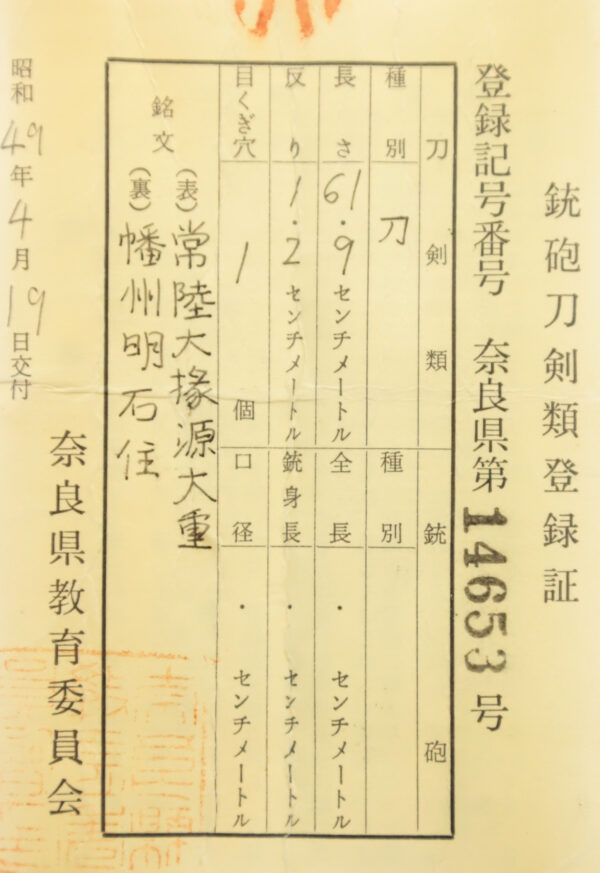 銃砲刀剣類登録証
登録記号番号 奈良県第14653号
刀剣類 銃砲
種別 刀 種別
長さ 61.9センチメートル 全長 ・ センチメートル
反り 1.2センチメートル 銃身長 ・ センチメートル
目くぎ穴 1個 口径 ・ センチメートル
銘文
(表)常陸大掾源大重
(裏)幡州明石住
昭和49年4月19日交付
奈良県教育委員会